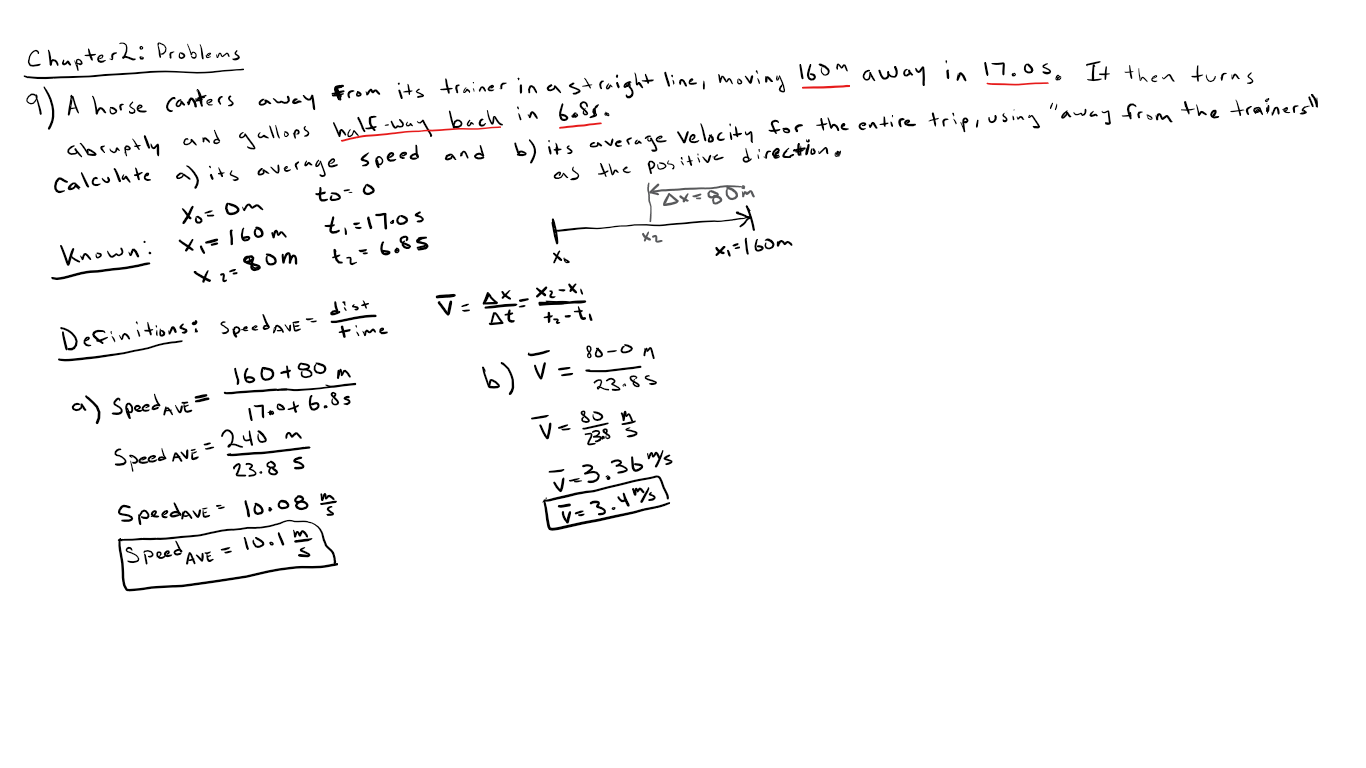 Chapter 2: Problems
9) A horse canters away from its trainer in a straight line, moving 160m away in 17.0s. It then turns
abruptly and gallops half-way back in 6.8s.
Calculate a) its average speed and b) its average velocity for the entire trip, using "away from the trainers"
as the positive direction.
Known: x₀= 0m t₀= 0
x₁= 160m t₁=17.0s
x₂= 80m t₂= 6.8s
Δx=80m
x₀ x₂ x₁=160m
Definitions: Speed AVE = dist/time V̅ = Δx/Δt = x₂-x₁/t₂-t₁
a) Speed AVE = 160+80 m/17.0+6.8s
Speed AVE = 240 m/23.8 s
Speed AVE = 10.08 m/s
Speed AVE = 10.1 m/s
b) V̅ = 80-0 m/23.8s
V̅ = 80/23.8 m/s
V̅=3.36 m/s
V̅= 3.4 m/s